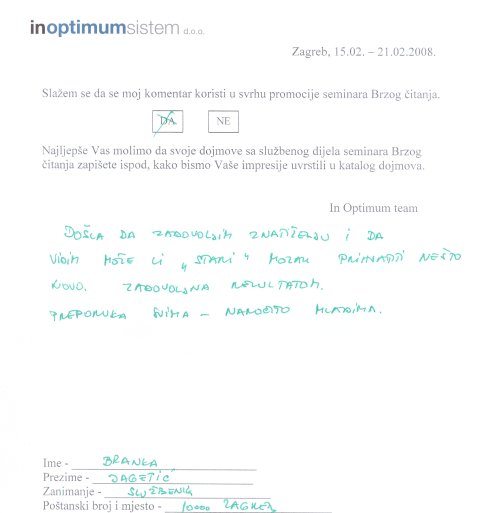 inoptimumsistem d.o.o.
Zagreb, 15.02. – 21.02.2008.
Slažem se da se moj komentar koristi u svrhu promocije seminara Brzog čitanja.
DA NE
Najljepše Vas molimo da svoje dojmove sa službenog dijela seminara Brzog
čitanja zapišete ispod, kako bismo Vaše impresije uvrstili u katalog dojmova.
In Optimum team
DOŠLA DA ZADOVOLJIM ZNATIŽELJU I DA
VIDIM MOŽE LI „STARI" MOZAK PRIHVATITI NEŠTO
NOVO. ZADOVOLJNA REZULTATOM.
PREPORUKA SVIMA – NAROČITO MLADIMA.
Ime - BRANKA
Prezime - JAGETIĆ
Zanimanje - SLUŽBENIK
Poštanski broj i mjesto - 10000 ZAGREB